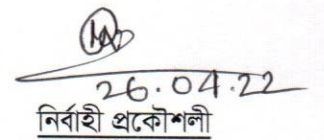 26.04.22
নির্বাহী প্রকৌশলী